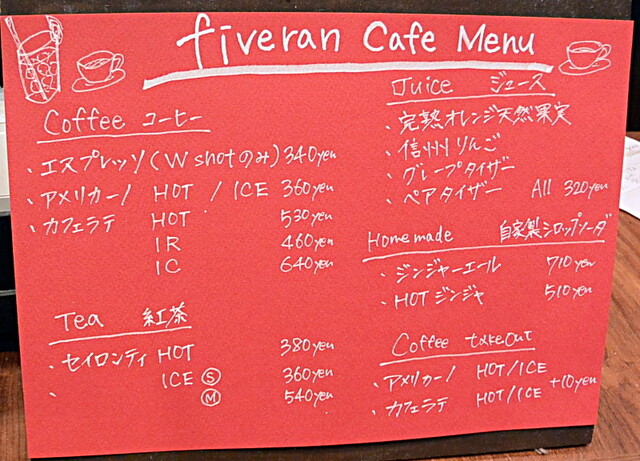 fiveran Cafe Menu
Coffee コーヒー
・エスプレッソ(W shotのみ) 340yen
・アメリカーノ HOT / ICE 360yen
・カフェラテ HOT 530yen
IR 460yen
IC 640yen
Tea 紅茶
・セイロンティ HOT 380yen
ICE Ⓢ 360yen
・ Ⓜ 540yen
Juice ジュース
・完熟オレンジ天然果実
・信州りんご
・グレープタイザー
・ペアタイザー All 320yen
Homemade 自家製シロップソーダ
・ジンジャーエール 710yen
・HOTジンジャ 510yen
Coffee takeout
・アメリカーノ HOT/ICE
+10yen
・カフェラテ HOT/ICE